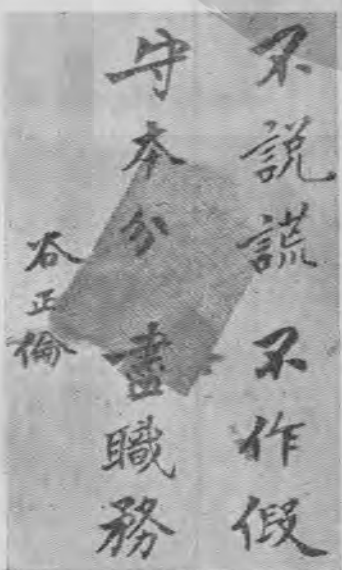 不説謊 不作假
守本分 盡職務
谷正倫